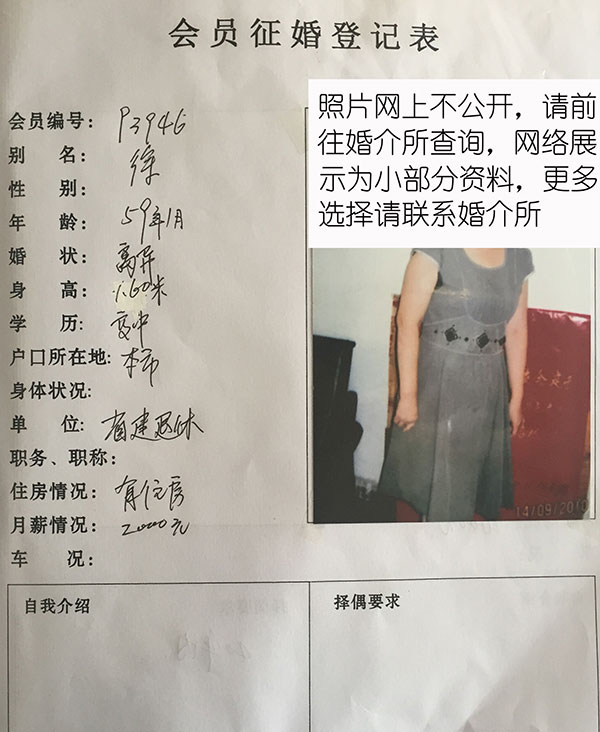 会员征婚登记表
照片网上不公开，请前
往婚介所查询，网络展
示为小部分资料，更多
选择请联系婚介所
会员编号： P3946
别 名： 徐
性 别：
年 龄： 59年1月
婚 状： 离异
身 高： 1.60米
学 历： 高中
户口所在地： 本市
身体状况：
单 位: 省建退休
职务、职称：
住房情况： 有住房
月薪情况： 2000元
车 况：
14/09/2010
自我介绍
择偶要求